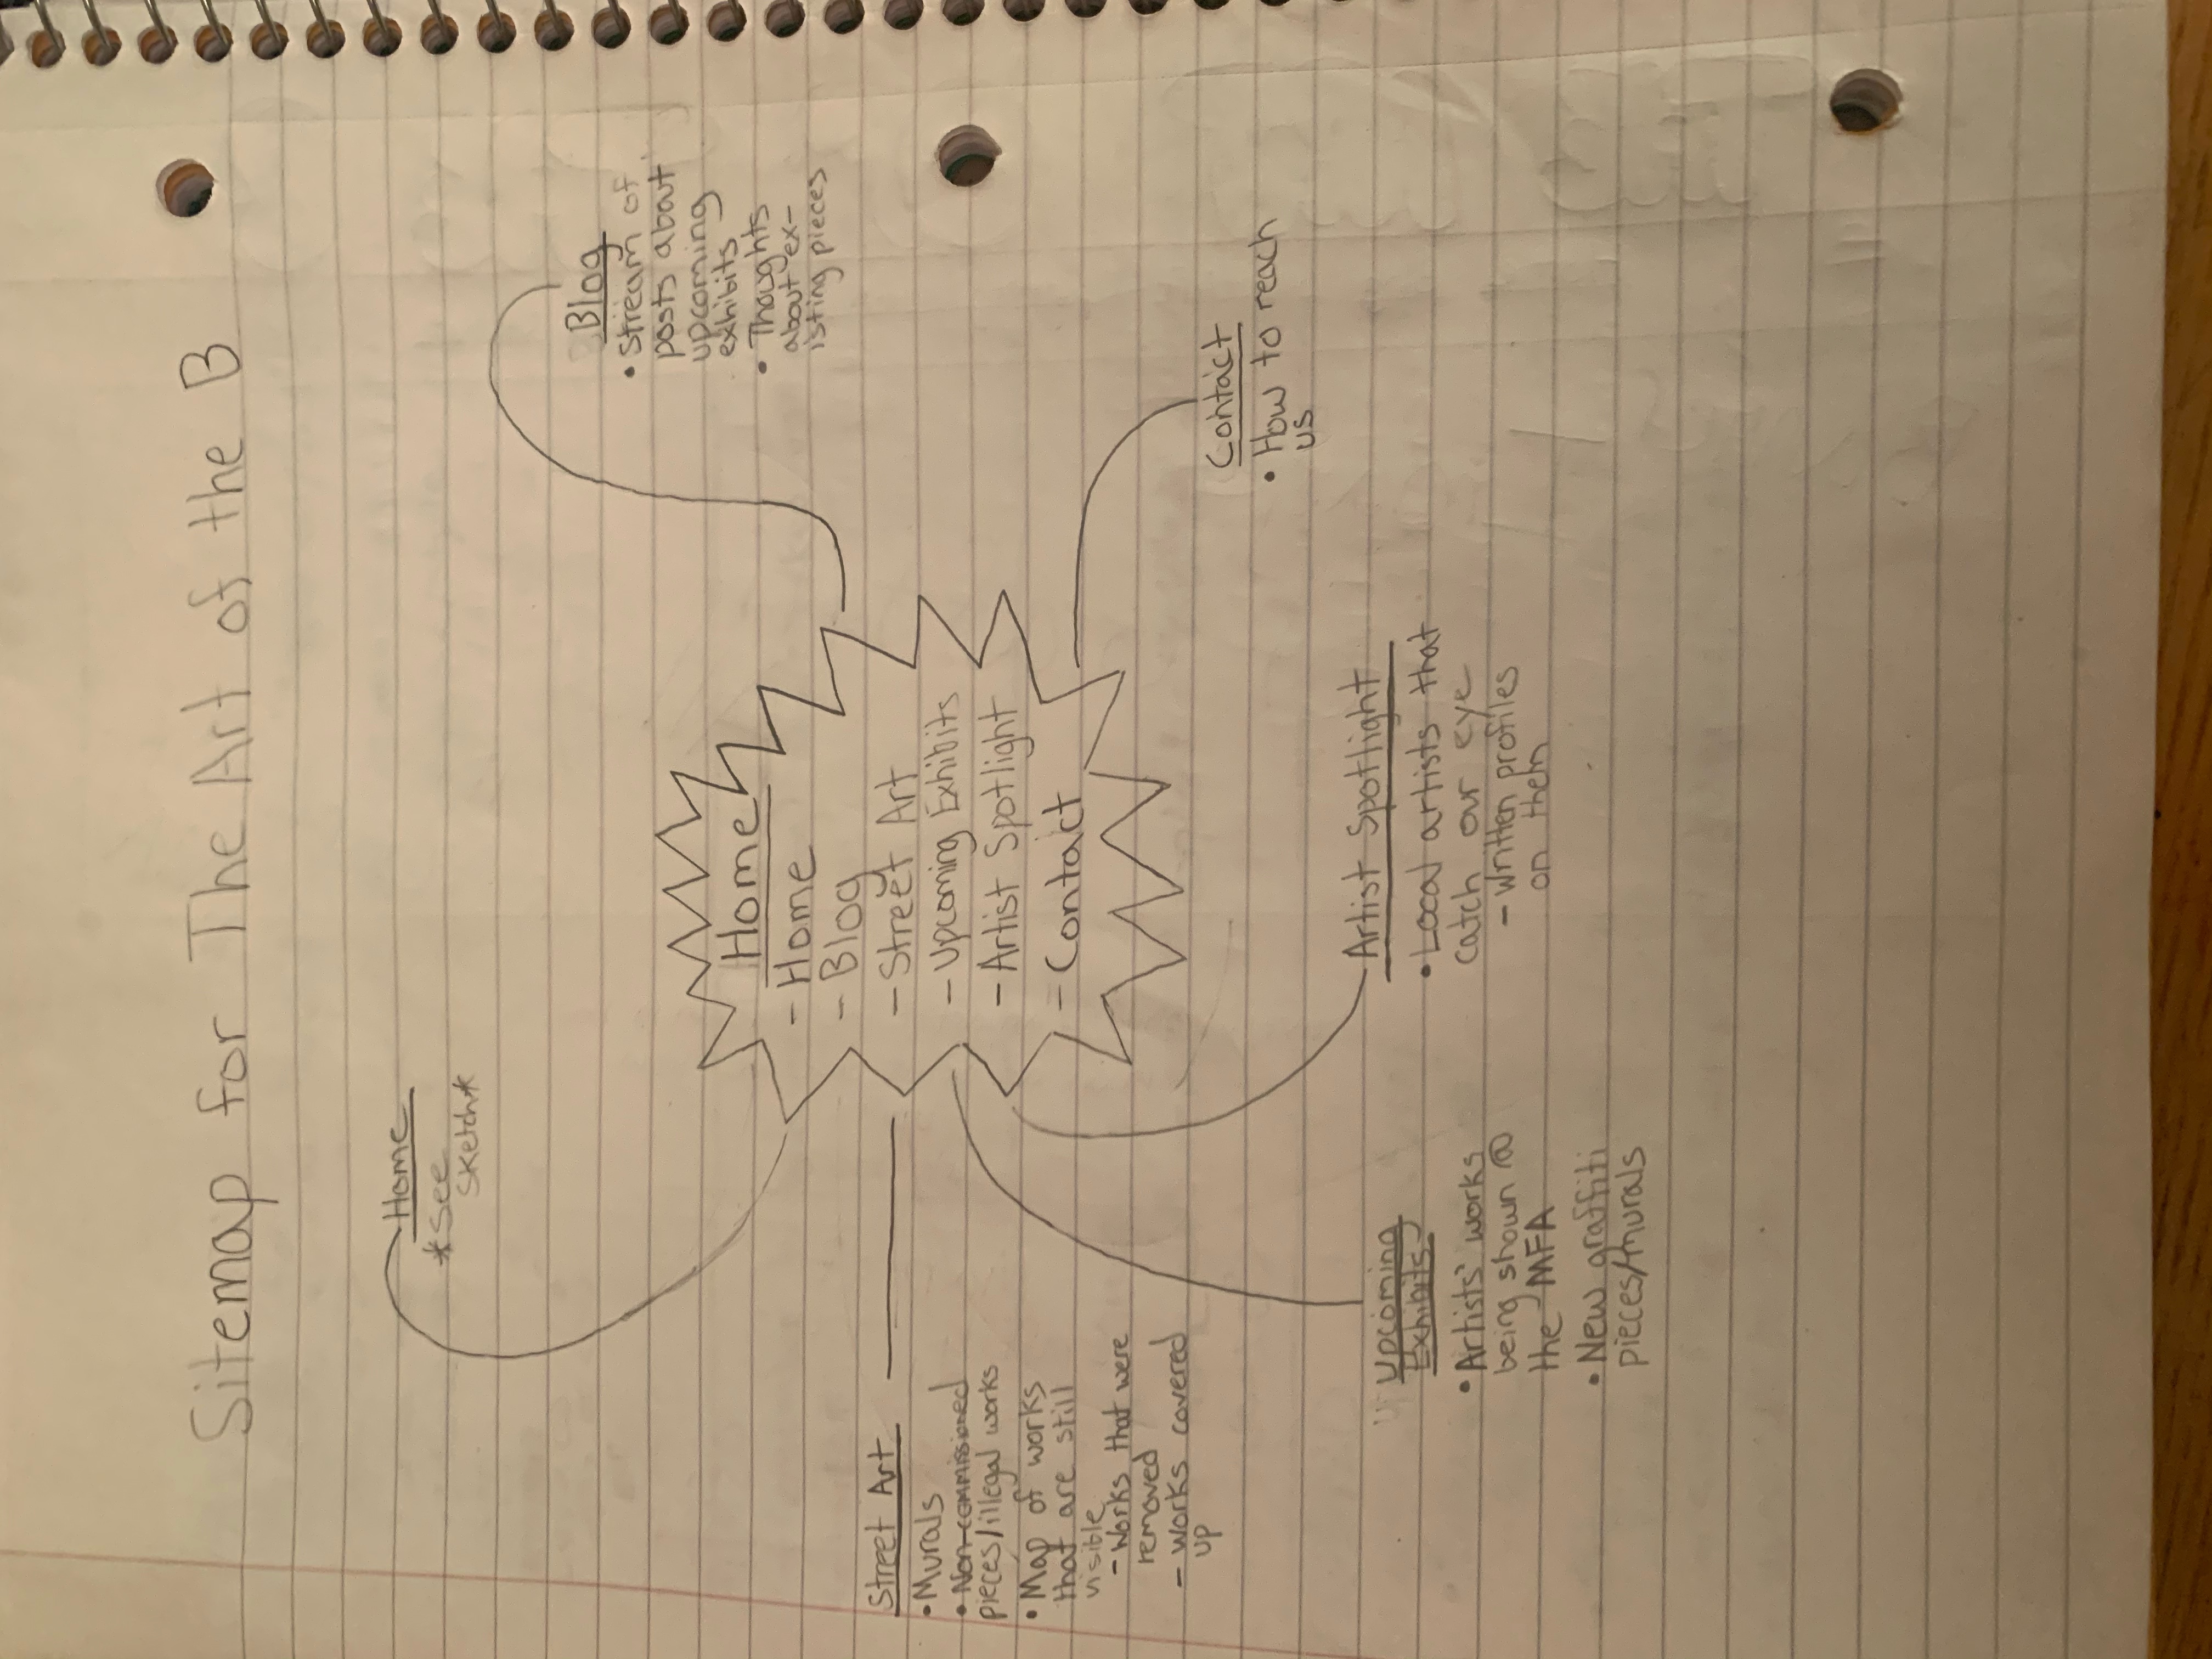 Sitemap for The Art of the B
Home
*See
Sketch*
Blog
• Stream of
posts about
upcoming
exhibits
• Thoughts
about ex-
isting pieces
Home
- Home
- Blog
- Street Art
- Upcoming Exhibits
- Artist Spotlight
- Contact
Street Art
• Murals
• Non-commissioned
pieces/illegal works
• Map of works
that are still
visible
- Works that were
removed
- works covered
up
Contact
• How to reach
us
Upcoming
Exhibits
• Artists' works
being shown @
the MFA
• New graffiti
pieces/murals
Artist Spotlight
• Local artists that
catch our eye
- written profiles
on them